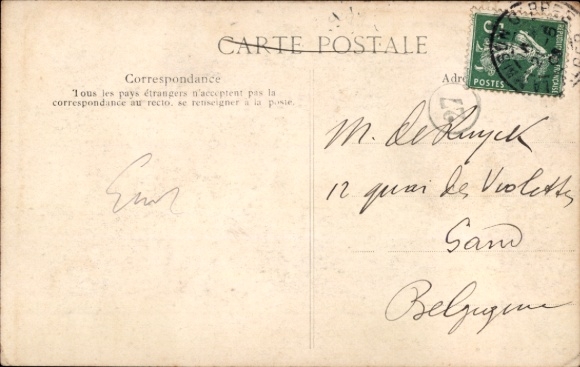 CARTE POSTALE
Correspondance
Tous les pays étrangers n'acceptent pas la
correspondance au recto, se renseigner à la poste.
Adre
POSTES
M. de Ruyck
12 quai des Violettes
Gand
Belgique